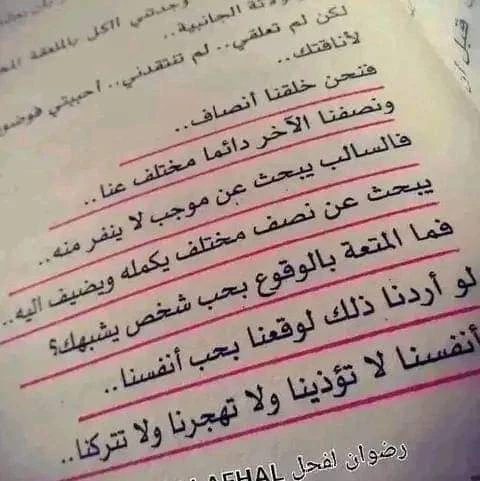 وجدتني الكل بالملعقة
الجانبية..
لكن لم تعلقي.. لم تنتقدني.. احببتي
لأناقتك..
فنحن خلقنا أنصاف..
ونصفنا الآخر دائما مختلف عنا..
فالسالب يبحث عن موجب لا ينفر منه..
يبحث عن نصف مختلف يكمله ويضيف اليه..
فما المتعة بالوقوع بحب شخص يشبهك؟
لو أردنا ذلك لوقعنا بحب أنفسنا..
أنفسنا لا تؤذينا ولا تهجرنا ولا تتركنا..
رضوان لفحل AFHAL
قبل أن